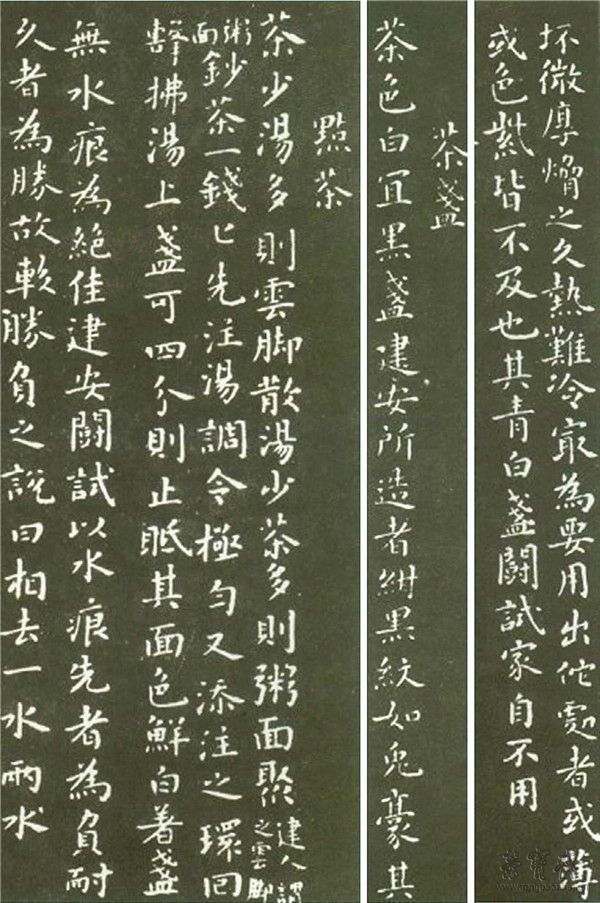 點茶
茶少湯多則雲脚散湯少茶多則粥面聚建人謂之雲脚
粥面鈔茶一錢匕先注湯調令極勻又添注之環回
擊拂湯上盞可四分則止眡其面色鮮白著盞
無水痕為絕佳建安鬭試以水痕先者為負耐
久者為勝故較勝負之說曰相去一水兩水
茶盞
茶色白宜黑盞建安所造者紺黑紋如兔豪其
坯微厚熁之久熱難冷最為要用出佗處者或薄
或色紫皆不及也其青白盞鬭試家自不用